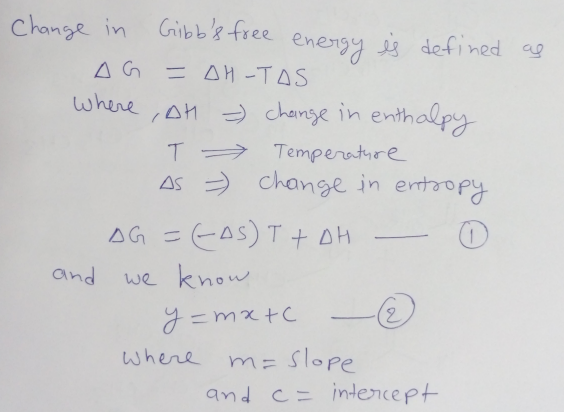 Change in Gibb's free energy is defined as
ΔG = ΔH - TΔS
where, ΔH ⇒ change in enthalpy
T ⇒ Temperature
ΔS ⇒ change in entropy
ΔG = (-ΔS) T + ΔH — ①
and we know
y = mx + c — ②
where m = slope
and c = intercept